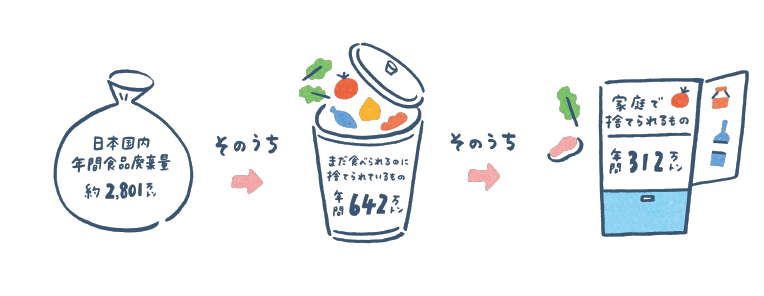 日本国内
年間食品廃棄量
約2,801万トン
そのうち
まだ食べられるのに
捨てられているもの
年間642万トン
そのうち
家庭で
捨てられるもの
年間312万トン